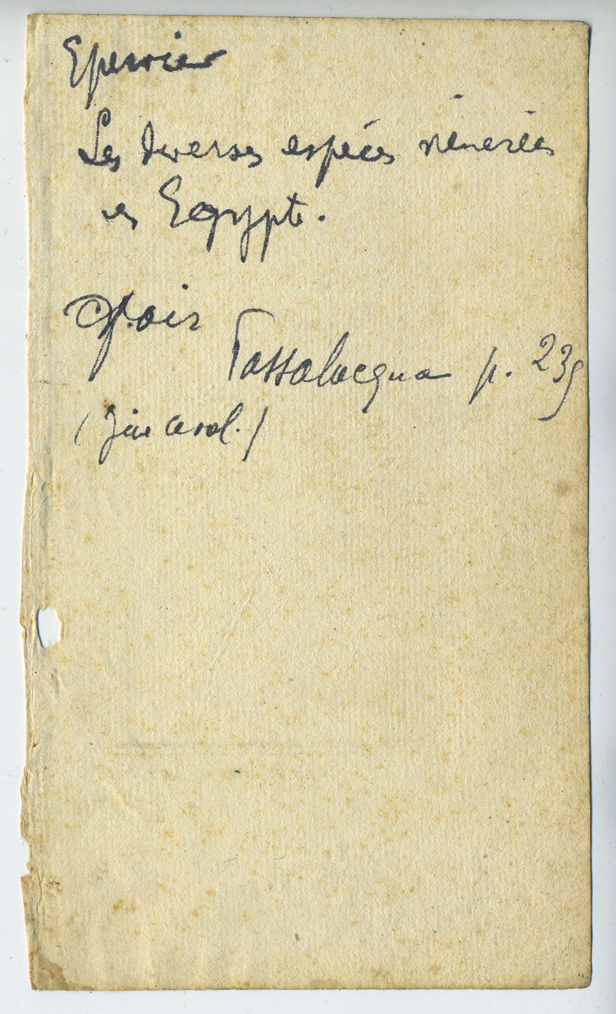 Epervier
Les diverses espèces vénérées
en Egypte.
Passalacqua p. 239